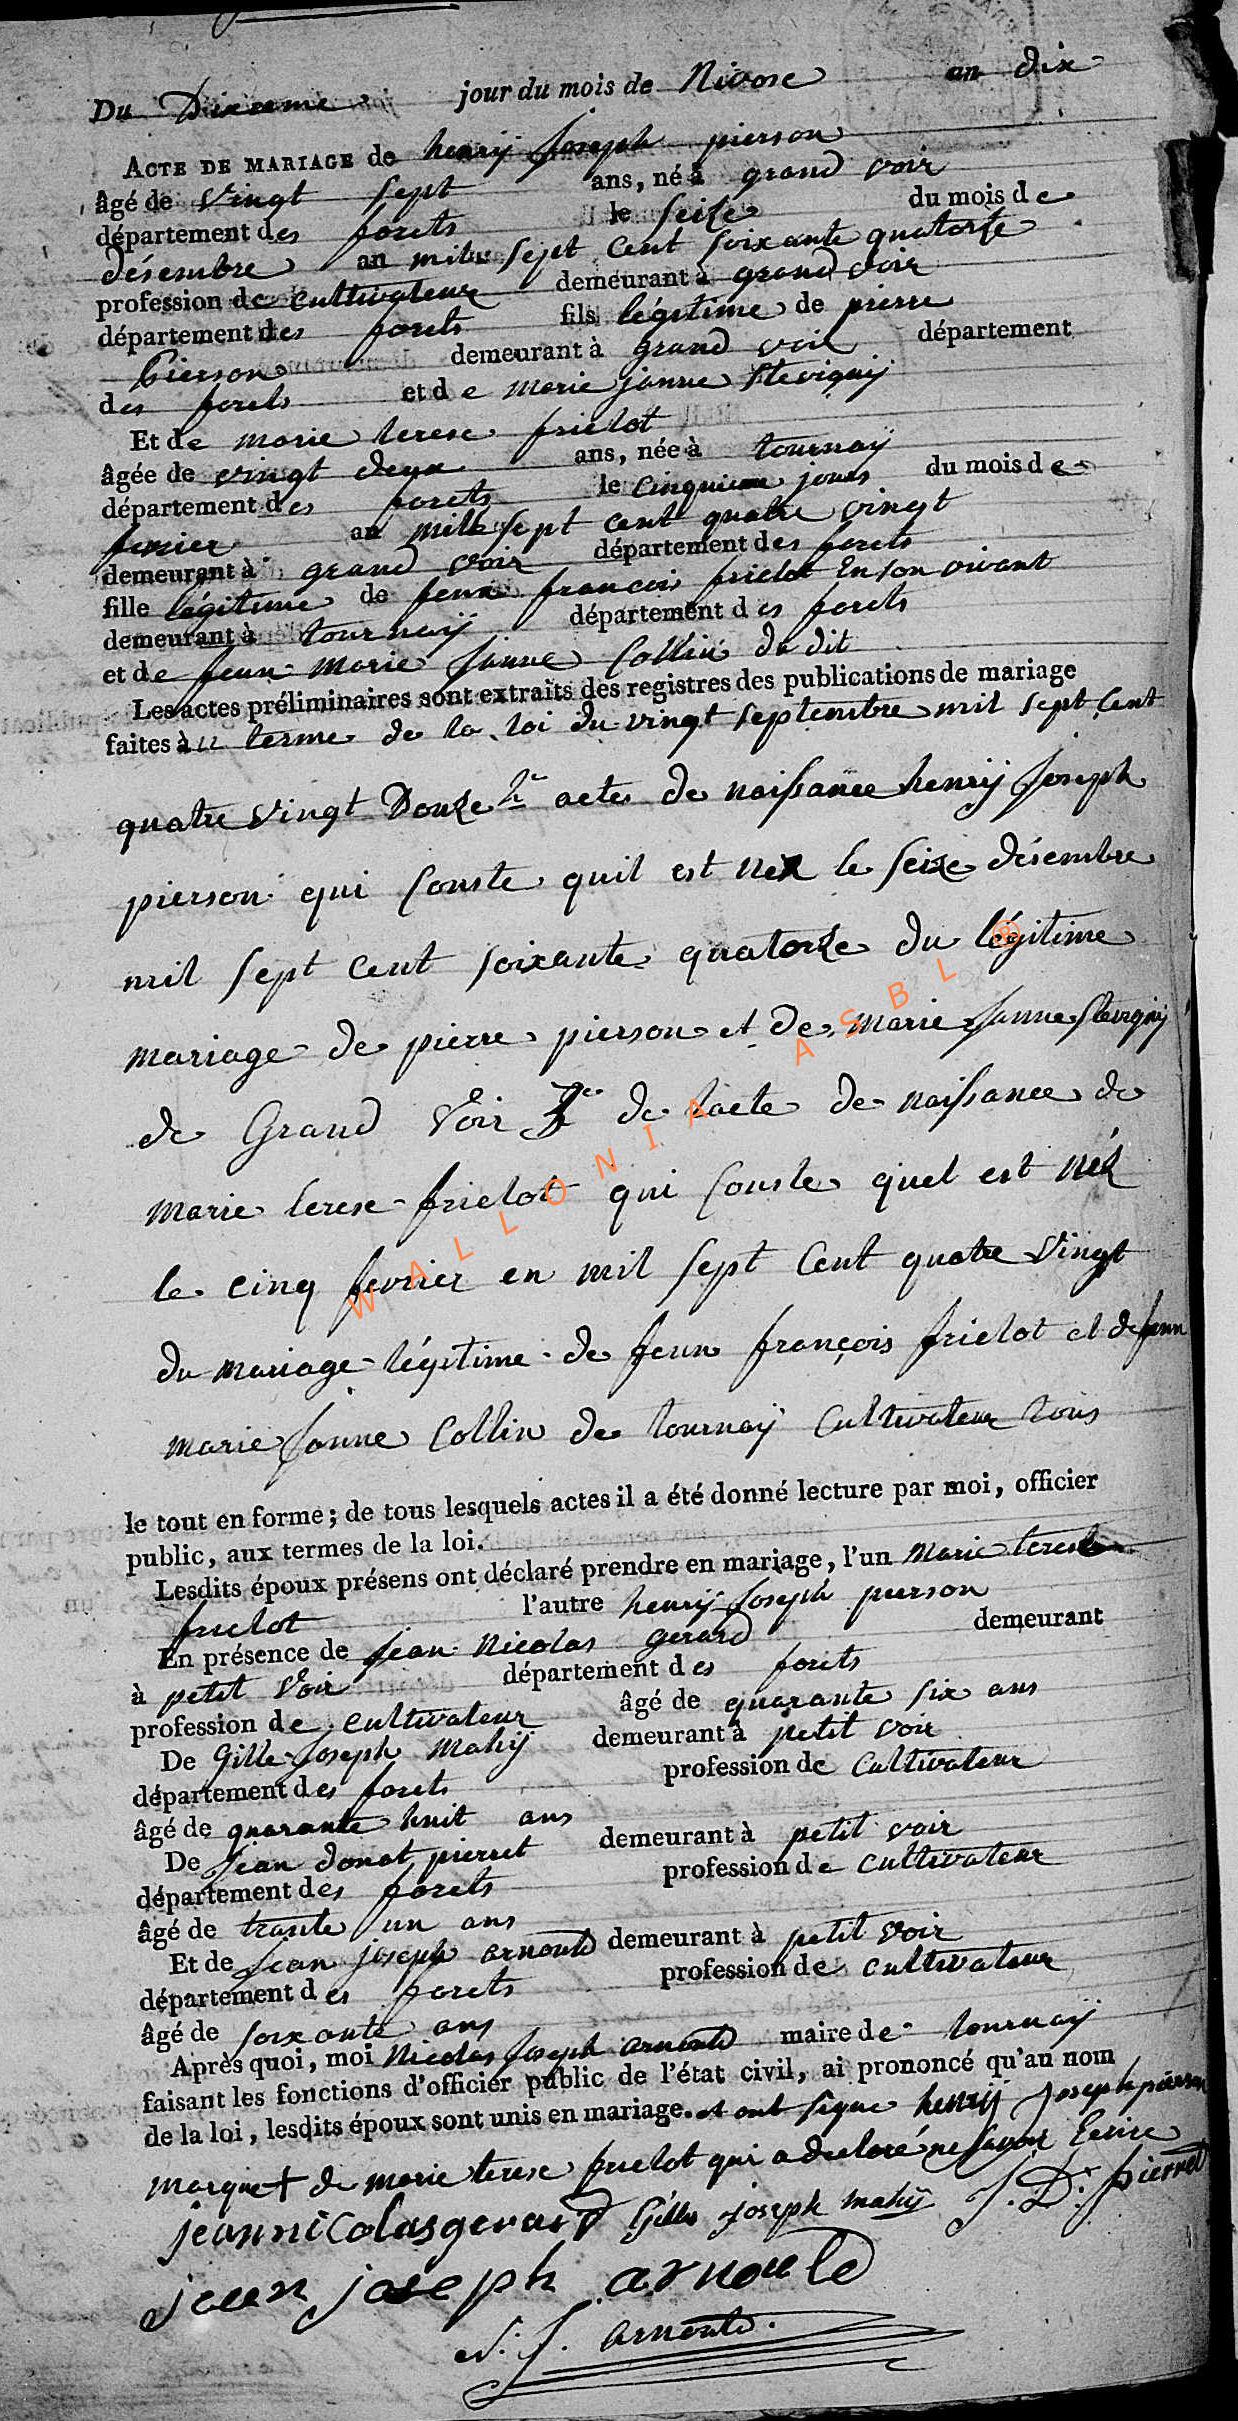 Du Dixieme jour du mois de Nivose an dix
ACTE DE MARIAGE de henrij Joseph pierson
âgé de vingt sept ans, né à grand voir
département des forets le seize du mois de
désembre an mile sept cent soixante quatorze
profession de cultivateur demeurant à grand voir
département des forets fils légitime de pierre
Pierson demeurant à grand voir département
des forets et de marie janne Stevignij
Et de marie terese frielot
âgée de vingt deux ans, née à tournaÿ
département des forets le cinquieme jours du mois de
fevrier an mille sept cent quatre vingt
demeurant à grand voir département des forets
fille légitime de feux francois frielot En son vivant
demeurant à tournaij département des forets
et de feux marie Janne Collin de dit
Les actes préliminaires sont extraits des registres des publications de mariage
faites à u terme de la loi du vingt septembre mil sept Cent
quatre vingt Douze actes de naissance henrij Joseph
pierson qui Conste quil est nez le seize désembre
mil sept cent soixante quatorze du légitime
mariage de pierre pierson et de marie Janne Stevignij
de Grand Voir de lacte de naissance de
marie terese frielot qui Conste quel est néz
le cinq fevrier en mil sept Cent quatre vingt
du mariage légitime de feux françois frielot et de feux
marie Janne Collin de tournaÿ Cultivateur tous
le tout en forme ; de tous lesquels actes il a été donné lecture par moi, officier
public, aux termes de la loi.
Lesdits époux présens ont déclaré prendre en mariage, l'un marie terese
frielot l'autre henrij Joseph pierson
En présence de jean Nicolas gerard demeurant
à petit Voir département des forets
profession de cultivateur âgé de quarante six ans
De Gille Joseph Mahÿ demeurant à petit voir
département des forets profession de cultivateur
âgé de quarante huit ans
De Jean donat pierret demeurant à petit voir
département des forets profession de cultivateur
âgé de trante un ans
Et de Jean joseph arnould demeurant à petit voir
département des forets profession de cultivateur
âgé de soixante ans
Après quoi, moi Nicolas Joseph arnould maire de tournaÿ
faisant les fonctions d'officier public de l'état civil, ai prononcé qu'au nom
de la loi, lesdits époux sont unis en mariage. et ont signe henrij Joseph pierson
marque + de marie terese frielot qui a declaré ne savoir Ecrire
jean nicolas gerard Gille joseph mahÿ J. D. pierret
jean joseph arnould
N. J. arnould.
WALLONIA ASBL ®